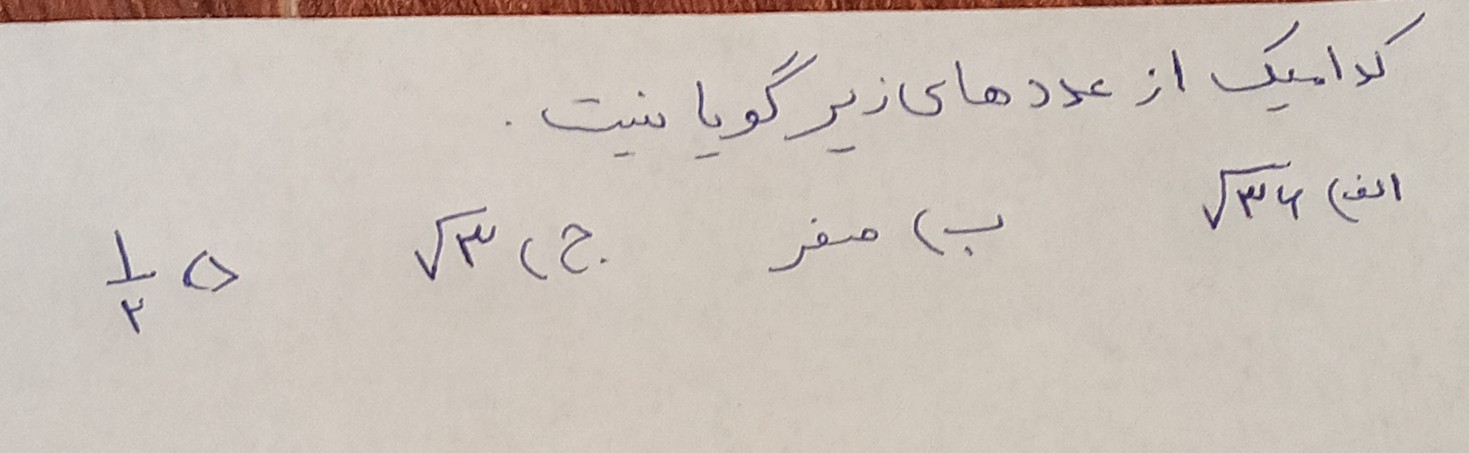 کدامیک از عددهای زیر گویا نیست.
الف) √۳۶ ب) صفر ج) √۳ د) ۱/۲